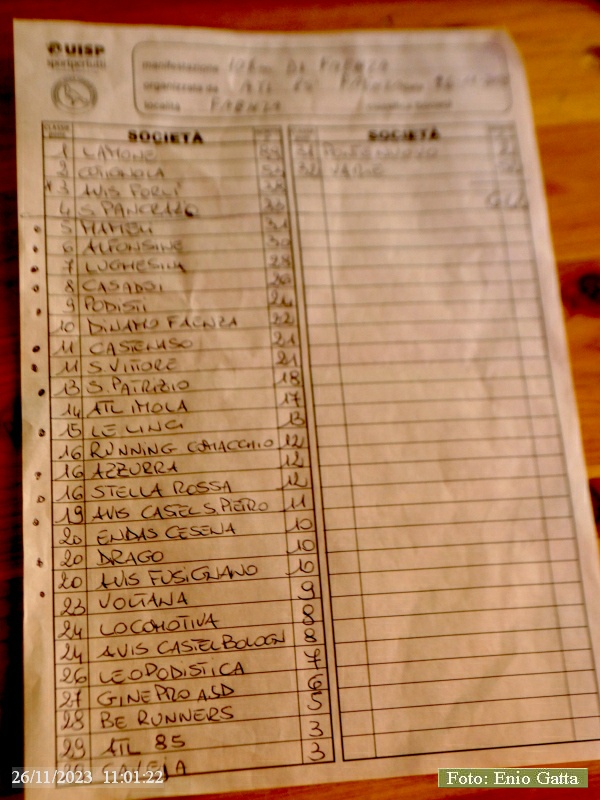 UISP
sportpertutti
manifestazione 10km DI FAENZA
organizzata da ATL 85 FAENZA
località FAENZA
SOCIETÀ
1 LAMONE
2 COTIGNOLA
3 AVIS FORLÌ 38
4 S. PANCRAZIO
5 MAMELI 31
6 ALFONSINE 30
7 LUGHESINA 28
8 CASADEI 26
9 PODISTI 24
10 DINAMO FAENZA 22
11 CASTENASO 21
11 S. VITTORE 21
13 S. PATRIZIO 18
14 ATL IMOLA 17
15 LE LINCI 13
16 RUNNING COMACCHIO 12
16 AZZURRA 12
16 STELLA ROSSA 12
19 AVIS CASTEL S. PIETRO 11
20 ENDAS CESENA 10
20 DRAGO 10
20 AVIS FUSIGNANO 10
23 VOLTANA 9
24 LOCOMOTIVA 8
24 AVIS CASTELBOLOGN 8
26 LEOPODISTICA 7
27 GINEPRO ASD 6
28 BE RUNNERS 5
29 ATL 85 3
3
SOCIETÀ
31 PONTENUOVO
32 VARIE
26/11/2023 11:01:22
Foto: Enio Gatta